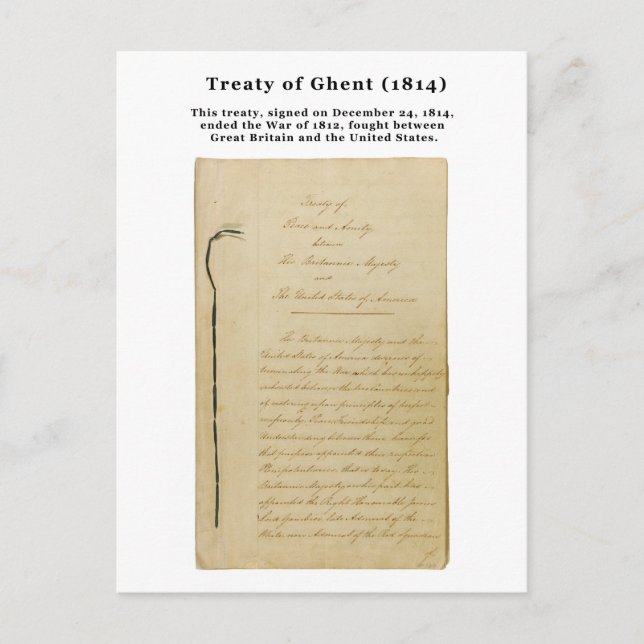 Treaty of Ghent (1814)
This treaty, signed on December 24, 1814,
ended the War of 1812, fought between
Great Britain and the United States.
Treaty of
Peace and Amity
between
His Britannic Majesty
and
The United States of America
His Britannic Majesty and the
United States of America desirous of
terminating the War which has unhappily
subsisted between the two Countries, and
of restoring upon principles of perfect
reciprocity, Peace, Friendship, and good
Understanding between them, have for
that purpose appointed their respective
Plenipotentiaries, that is to say, His
Britannic Majesty on his part has
appointed the Right Honourable James
Lord Gambier, late Admiral of the
White now Admiral of the Red Squadron
of